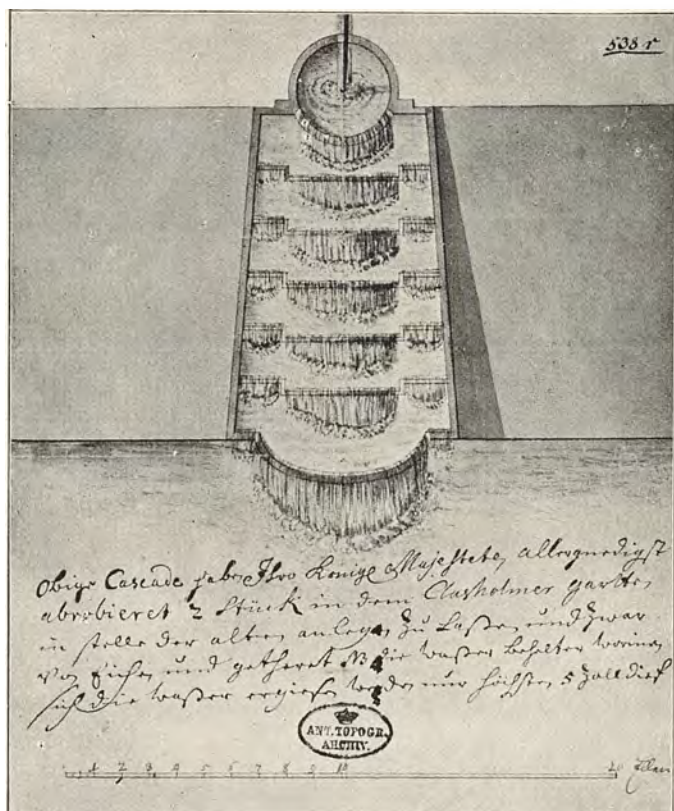 538 r
Obige Cascade haben Ihro Königl Majestete allergnedigst
abrobieret 2 Stück in dem Clausholmer garten
in stelle der alten anlegen zu Laßen und zwar
von Eichen und getheret NB die waßer behalter worinen
sich die waßer ergießen werden nur höchsten 5 Zoll dief
ANT. TOPOGR.
ARCHIV.
1 2 3 4 5 6 7 8 9 10 20 Ellen